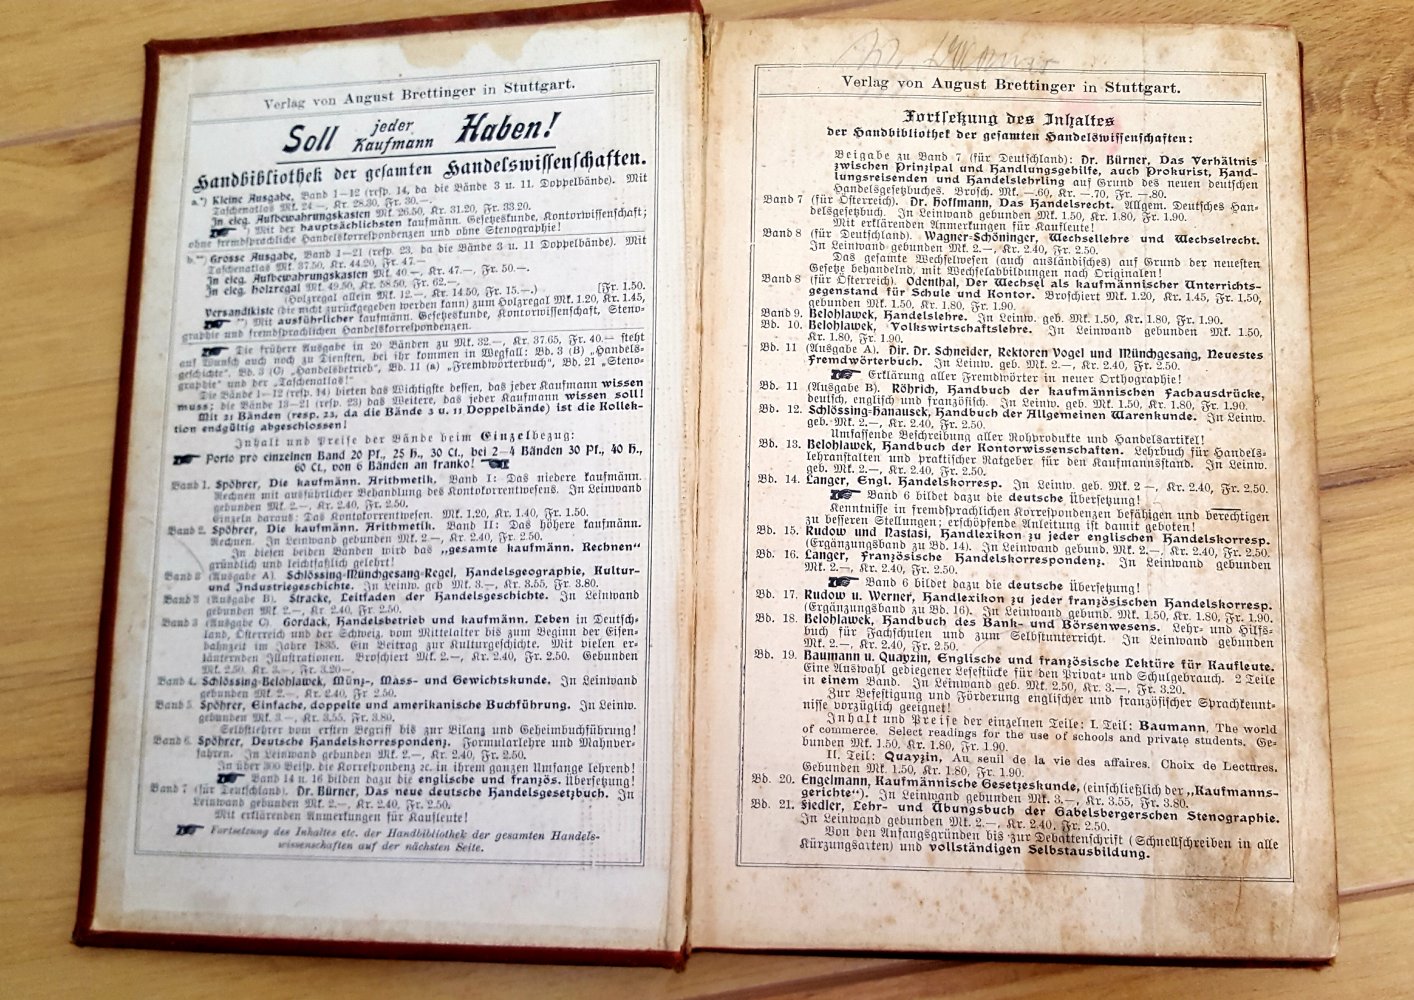 Verlag von August Brettinger in Stuttgart.
Soll jeder Kaufmann Haben!
Handbibliothek der gesamten Handelswissenschaften.
a.*) Kleine Ausgabe, Band 1–12 (resp. 14, da die Bände 3 u. 11 Doppelbände). Mit
Taschenatlas Mk. 24.—, Kr. 28.30, Fr. 30.—.
In eleg. Aufbewahrungskasten Mk. 26.50, Kr. 31.20, Fr. 33.20.
*) Mit der hauptsächlichsten kaufmänn. Gesetzeskunde, Kontorwissenschaft;
ohne fremdsprachliche Handelskorrespondenzen und ohne Stenographie!
b.**) Grosse Ausgabe, Band 1–21 (resp. 23, da die Bände 3 u. 11 Doppelbände). Mit
Taschenatlas Mk. 37.50, Kr. 44.20, Fr. 47.—
In eleg. Aufbewahrungskasten Mk. 40.—, Kr. 47.—, Fr. 50.—.
In eleg. Holzregal Mk. 49.50, Kr. 58.50, Fr. 62.—.
(Holzregal allein Mk. 12.—, Kr. 14.50, Fr. 15.—.) [Fr. 1.50.
Versandkiste (die nicht zurückgegeben werden kann) zum Holzregal Mk. 1.20, Kr. 1.45,
**) Mit ausführlicher kaufmänn. Gesetzeskunde, Kontorwissenschaft, Steno-
graphie und fremdsprachlichen Handelskorrespondenzen.
Die frühere Ausgabe in 20 Bänden zu Mk. 32.—, Kr. 37.65, Fr. 40.— steht
auf Wunsch auch noch zu Diensten, bei ihr kommen in Wegfall: Bd. 3 (B) „Handels-
geschichte“, Bd. 3 (C) „Handelsbetrieb“, Bd. 11 (a) „Fremdwörterbuch“, Bd. 21 „Steno-
graphie“ und der „Taschenatlas!“
Die Bände 1–12 (resp. 14) bieten das Wichtigste dessen, das jeder Kaufmann wissen
muss; die Bände 13–21 (resp. 23) das Weitere, das jeder Kaufmann wissen soll!
Mit 21 Bänden (resp. 23, da die Bände 3 u. 11 Doppelbände) ist die Kollek-
tion endgültig abgeschlossen!
Inhalt und Preise der Bände beim Einzelbezug:
Porto pro einzelnen Band 20 Pf., 25 H., 30 Ct., bei 2–4 Bänden 30 Pf., 40 H.,
60 Ct., von 6 Bänden an franko!
Band 1. Spöhrer, Die kaufmänn. Arithmetik, Band I: Das niedere kaufmänn.
Rechnen mit ausführlicher Behandlung des Kontokorrentwesens. In Leinwand
gebunden Mk. 2.—, Kr. 2.40, Fr. 2.50.
Einzeln daraus: Das Kontokorrentwesen. Mk. 1.20, Kr. 1.40, Fr. 1.50.
Band 2. Spöhrer, Die kaufmänn. Arithmetik. Band II: Das höhere kaufmänn.
Rechnen. In Leinwand gebunden Mk. 2.—, Kr. 2.40, Fr. 2.50.
In diesen beiden Bänden wird das „gesamte kaufmänn. Rechnen“
gründlich und leichtfaßlich gelehrt!
Band 3 (Ausgabe A). Schlössing-Münchgesang-Regel, Handelsgeographie, Kultur-
und Industriegeschichte. In Leinw. geb. Mk. 3.—, Kr. 3.55, Fr. 3.80.
Band 3 (Ausgabe B). Stracke, Leitfaden der Handelsgeschichte. In Leinwand
gebunden Mk. 2.—, Kr. 2.40, Fr. 2.50.
Band 3 (Ausgabe C). Gordack, Handelsbetrieb und kaufmänn. Leben in Deutsch-
land, Österreich und der Schweiz, vom Mittelalter bis zum Beginn der Eisen-
bahnzeit im Jahre 1835. Ein Beitrag zur Kulturgeschichte. Mit vielen er-
läuternden Illustrationen. Broschiert Mk. 2.—, Kr. 2.40, Fr. 2.50. Gebunden
Mk. 2.50, Kr. 3.—, Fr. 3.20.—
Band 4. Schlössing-Belohlawek, Münz-, Mass- und Gewichtskunde. In Leinwand
gebunden Mk. 2.—, Kr. 2.40, Fr. 2.50.
Band 5. Spöhrer, Einfache, doppelte und amerikanische Buchführung. In Leinw.
gebunden Mk. 3.—, Kr. 3.55, Fr. 3.80.
Selbstlehrer vom ersten Begriff bis zur Bilanz und Geheimbuchführung!
Band 6. Spöhrer, Deutsche Handelskorrespondenz. Formularlehre und Mahnver-
fahren. In Leinwand gebunden Mk. 2.—, Kr. 2.40, Fr. 2.50.
In über 300 Beisp. die Korrespondenz ꝛc. in ihrem ganzen Umfange lehrend!
Band 14 u. 16 bilden dazu die englische und französ. Übersetzung!
Band 7 (für Deutschland). Dr. Bürner, Das neue deutsche Handelsgesetzbuch. In
Leinwand gebunden Mk. 2.—, Kr. 2.40, Fr. 2.50.
Mit erklärenden Anmerkungen für Kaufleute!
Fortsetzung des Inhaltes etc. der Handbibliothek der gesamten Handels-
wissenschaften auf der nächsten Seite.
Verlag von August Brettinger in Stuttgart.
Fortsetzung des Inhaltes
der Handbibliothek der gesamten Handelswissenschaften:
Beigabe zu Band 7 (für Deutschland): Dr. Bürner, Das Verhältnis
zwischen Prinzipal und Handlungsgehilfe, auch Prokurist, Hand-
lungsreisenden und Handelslehrling auf Grund des neuen deutschen
Handelsgesetzbuches. Brosch. Mk. —.60, Kr. —.70, Fr. —.80.
Band 7 (für Österreich). Dr. Hoffmann, Das Handelsrecht. Allgem. Deutsches Han-
delsgesetzbuch. In Leinwand gebunden Mk. 1.50, Kr. 1.80, Fr. 1.90.
Mit erklärenden Anmerkungen für Kaufleute!
Band 8 (für Deutschland). Wagner-Schöninger, Wechsellehre und Wechselrecht.
In Leinwand gebunden Mk. 2.—, Kr. 2.40, Fr. 2.50.
Das gesamte Wechselwesen (auch ausländisches) auf Grund der neuesten
Gesetze behandelnd, mit Wechselabbildungen nach Originalen!
Band 8 (für Österreich). Odenthal, Der Wechsel als kaufmännischer Unterrichts-
gegenstand für Schule und Kontor. Broschiert Mk. 1.20, Kr. 1.45, Fr. 1.50,
gebunden Mk. 1.50, Kr. 1.80, Fr. 1.90.
Band 9. Belohlawek, Handelslehre. In Leinw. geb. Mk. 1.50, Kr. 1.80, Fr. 1.90.
Bd. 10. Belohlawek, Volkswirtschaftslehre. In Leinwand gebunden Mk. 1.50,
Kr. 1.80, Fr. 1.90.
Bd. 11 (Ausgabe A). Dir. Dr. Schneider, Rektoren Vogel und Münchgesang, Neuestes
Fremdwörterbuch. In Leinw. geb. Mk. 2.—, Kr. 2.40, Fr. 2.50.
Erklärung aller Fremdwörter in neuer Orthographie!
Bd. 11 (Ausgabe B). Röhrich, Handbuch der kaufmännischen Fachausdrücke,
deutsch, englisch und französisch. In Leinw. geb. Mk. 1.50, Kr. 1.80, Fr. 1.90.
Bd. 12. Schlössing-Hanausek, Handbuch der Allgemeinen Warenkunde. In Leinw.
geb. Mk. 2.—, Kr. 2.40, Fr. 2.50.
Umfassende Beschreibung aller Rohprodukte und Handelsartikel!
Bd. 13. Belohlawek, Handbuch der Kontorwissenschaften. Lehrbuch für Handels-
lehranstalten und praktischer Ratgeber für den Kaufmannsstand. In Leinw.
geb. Mk. 2.—, Kr. 2.40, Fr. 2.50.
Bd. 14. Langer, Engl. Handelskorresp. In Leinw. geb. Mk. 2.—, Kr. 2.40, Fr. 2.50.
Band 6 bildet dazu die deutsche Übersetzung!
Kenntnisse in fremdsprachlichen Korrespondenzen befähigen und berechtigen
zu besseren Stellungen; erschöpfende Anleitung ist damit geboten!
Bd. 15. Rudow und Nastasi, Handlexikon zu jeder englischen Handelskorresp.
(Ergänzungsband zu Bd. 14). In Leinwand gebund. Mk. 2.—, Kr. 2.40, Fr. 2.50.
Bd. 16. Langer, Französische Handelskorrespondenz. In Leinwand gebunden
Mk. 2.—, Kr. 2.40, Fr. 2.50.
Band 6 bildet dazu die deutsche Übersetzung!
Bd. 17. Rudow u. Werner, Handlexikon zu jeder französischen Handelskorresp.
(Ergänzungsband zu Bd. 16). In Leinwand gebund. Mk. 1.50, Kr. 1.80, Fr. 1.90.
Bd. 18. Belohlawek, Handbuch des Bank- und Börsenwesens. Lehr- und Hilfs-
buch für Fachschulen und zum Selbstunterricht. In Leinwand gebunden
Mk. 2.—, Kr. 2.40, Fr. 2.50.
Bd. 19. Baumann u. Quayzin, Englische und französische Lektüre für Kaufleute.
Eine Auswahl gediegener Lesestücke für den Privat- und Schulgebrauch. 2 Teile
in einem Band. In Leinwand geb. Mk. 2.50, Kr. 3.—, Fr. 3.20.
Zur Befestigung und Förderung englischer und französischer Sprachkennt-
nisse vorzüglich geeignet!
Inhalt und Preise der einzelnen Teile: I. Teil: Baumann, The world
of commerce. Select readings for the use of schools and private students. Ge-
bunden Mk. 1.50, Kr. 1.80, Fr. 1.90.
II. Teil: Quayzin, Au seuil de la vie des affaires. Choix de Lectures.
Gebunden Mk. 1.50, Kr. 1.80, Fr. 1.90.
Bd. 20. Engelmann, Kaufmännische Gesetzeskunde, (einschließlich der „Kaufmanns-
gerichte“). In Leinwand gebunden Mk. 3.—, Kr. 3.55, Fr. 3.80.
Bd. 21. Fiedler, Lehr- und Übungsbuch der Gabelsbergerschen Stenographie.
In Leinwand gebunden Mk. 2.—, Kr. 2.40, Fr. 2.50.
Von den Anfangsgründen bis zur Debattenschrift (Schnellschreiben in alle
Kürzungsarten) und vollständigen Selbstausbildung.